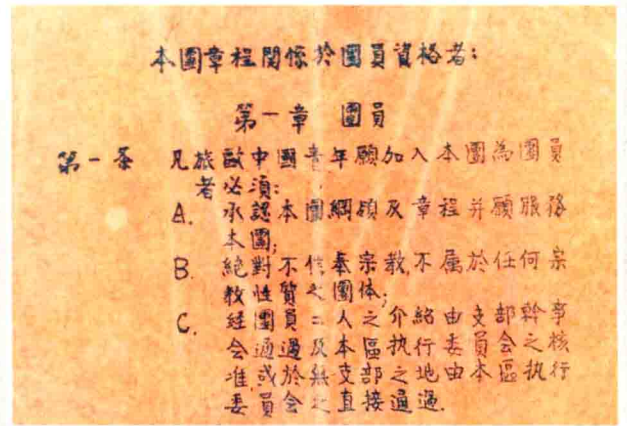 本團章程關係於團員資格者：
第一章 團員
第一条 凡旅歐中國青年願加入本團為團員
者必須：
A. 承認本團綱領及章程并願服務
本團；
B. 絕對不信奉宗教，不属於任何宗
教性質之團体；
C. 經團員二人之介紹由支部幹事
会通過及本區执行委員会之核
准，或於無支部之地由本區执行
委員会之直接通過.